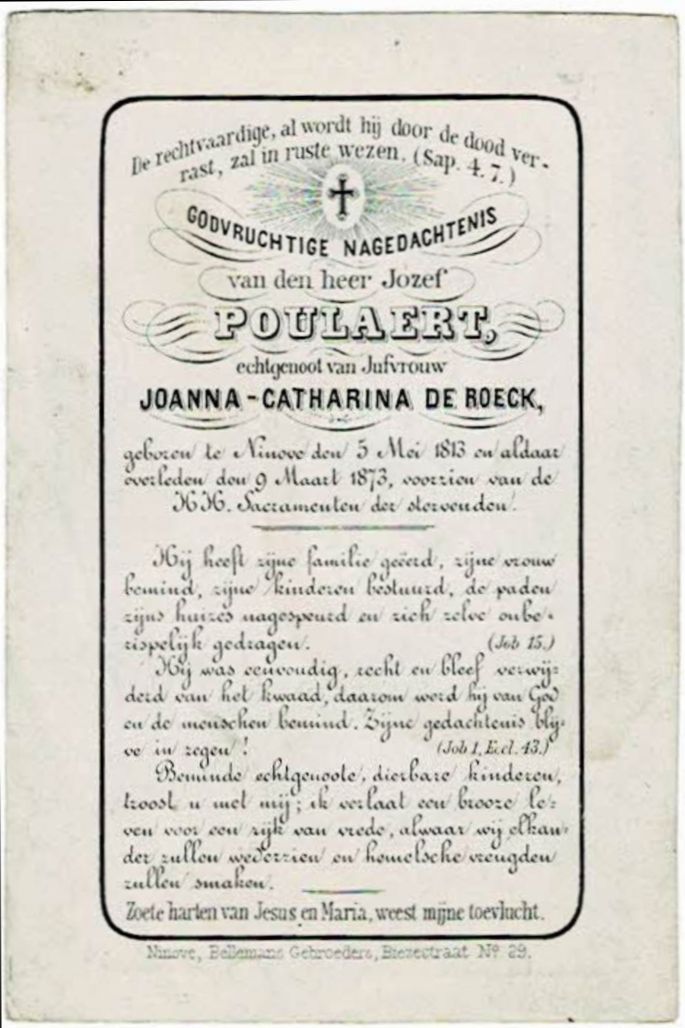 De rechtvaardige, al wordt hij door de dood ver-
rast, zal in ruste wezen. (Sap. 4. 7.)
GODVRUCHTIGE NAGEDACHTENIS
van den heer Jozef
POULAERT,
echtgenoot van Jufvrouw
JOANNA-CATHARINA DE ROECK,
geboren te Ninove den 5 Mei 1813 en aldaar
overleden den 9 Maart 1873, voorzien van de
HH. Sacramenten der stervenden.
Hij heeft zijne familie geëerd, zijne vrouw
bemind, zijne kinderen bestuurd, de paden
zijns huizes nagespeurd en zich zelve onbe-
rispelijk gedragen. (Job 15.)
Hij was eenvoudig, recht en bleef verwij-
derd van het kwaad, daarom werd hij van God
en de menschen bemind. Zijne gedachtenis blij-
ve in zegen! (Job 1, Eccl. 43.)
Beminde echtgenoote, dierbare kinderen,
troost u met mij; ik verlaat een brooze le-
ven voor een rijk van vrede, alwaar wij elkan-
der zullen wederzien en hemelsche vreugden
zullen smaken.
Zoete harten van Jesus en Maria, weest mijne toevlucht.
Ninove, Bellemans Gebroeders, Biezestraat Nº 29.